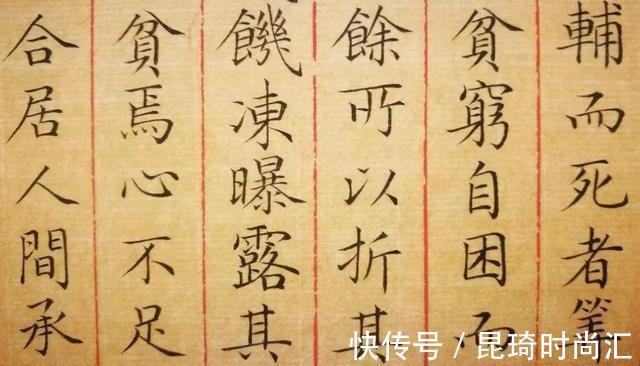 輔而死者
貧窮自困而
餘所以折其
饑凍曝露其
貧焉心不足
合居人間承
快传号 / 昆琦时尚汇